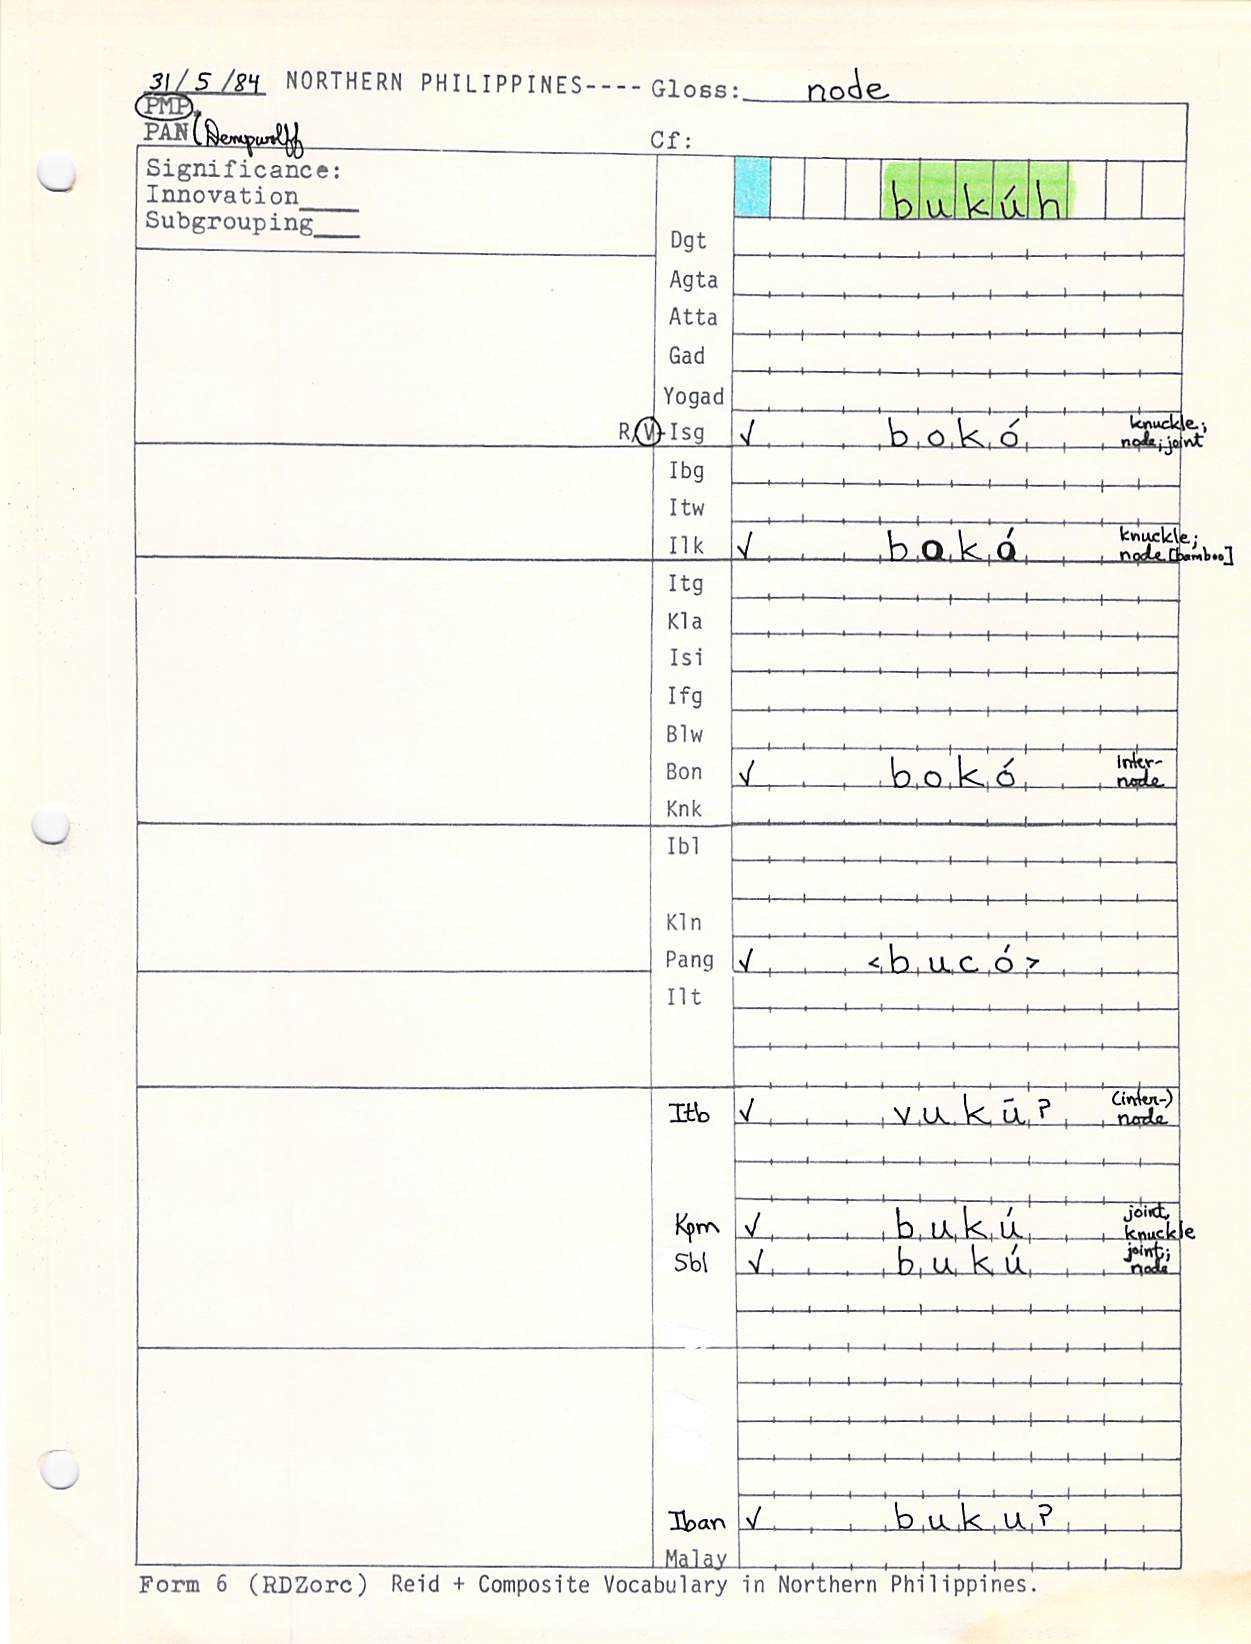 31/5/84 NORTHERN PHILIPPINES---- Gloss: node
PMP,
PAN (Dempwolff
Cf:
Significance:
Innovation____
Subgrouping___
bukúh
Dgt
Agta
Atta
Gad
Yogad
R/V-Isg ✓ bokó knuckle;
node; joint
Ibg
Itw
Ilk ✓ boKó knuckle;
node [bamboo]
Itg
Kla
Isi
Ifg
Blw
Bon ✓ bokó inter-
node
Knk
Ibl
Kln
Pang ✓ <bucó>
Ilt
Itb ✓ vukūʔ (inter-)
node
Kpm ✓ bukú joint,
knuckle
Sbl ✓ bukú joint;
node
Iban ✓ bukuʔ
Malay
Form 6 (RDZorc) Reid + Composite Vocabulary in Northern Philippines.